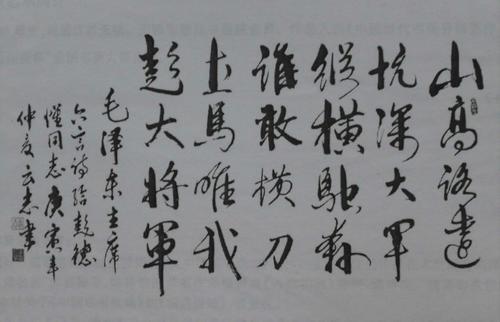 山高路遠
坑深大軍
縱橫馳奔
誰敢橫刀
上馬唯我
彭大將軍
毛澤东主席
六言詩給彭德
懷同志庚寅年
仲夏云志書